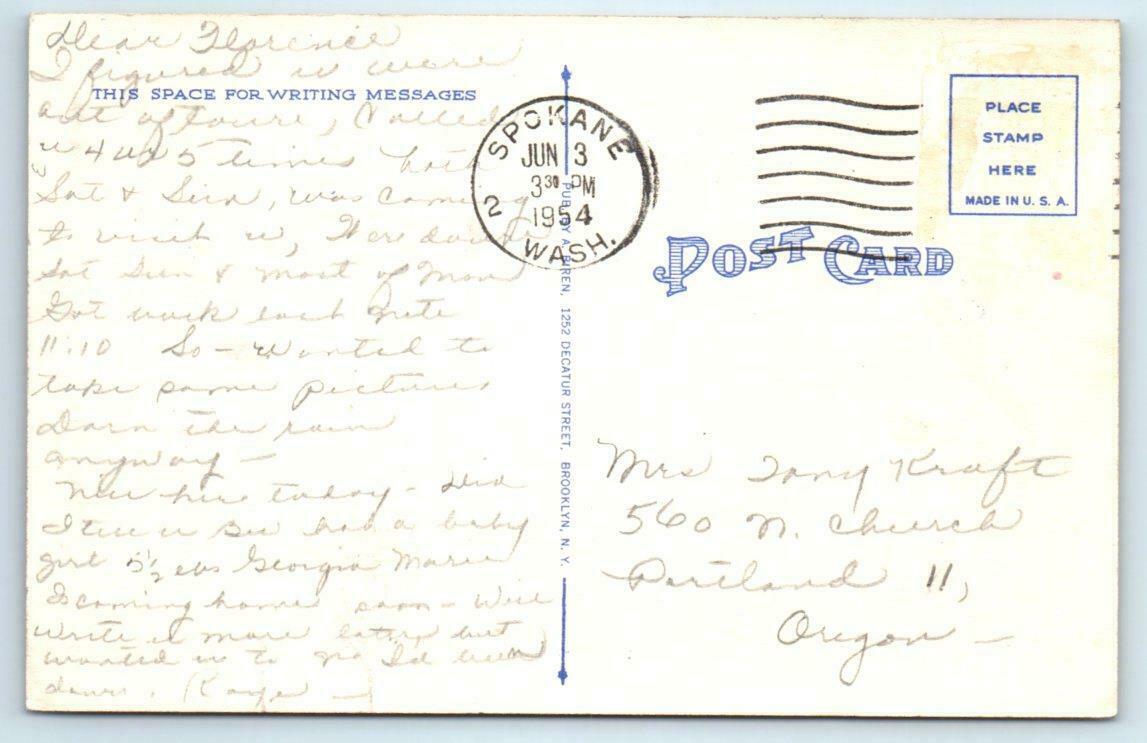 Dear Florence
I figured u were
THIS SPACE FOR WRITING MESSAGES
out of town, Called
u 4 or 5 times both
Sat & Sun, was coming
to visit u, Were down
Sat Sun & most of Mon
Got back last nite
11:10 So - Wanted to
take some pictures
Darn the rain
anyway -
Nice here today - Did
I tell u Sue had a baby
girl 5 1/2 Georgia Marie
Is coming home soon - Will
write u more later but
wanted u to no I'd been
down. Kaye -
SPOKANE
JUN 3
3 30 PM
1954
2 WASH.
PUB. BY A. BIREN, 1252 DECATUR STREET, BROOKLYN, N. Y.
PLACE
STAMP
HERE
MADE IN U. S. A.
POST CARD
Mrs Tony Kraft
560 N. Church
Portland 11,
Oregon -